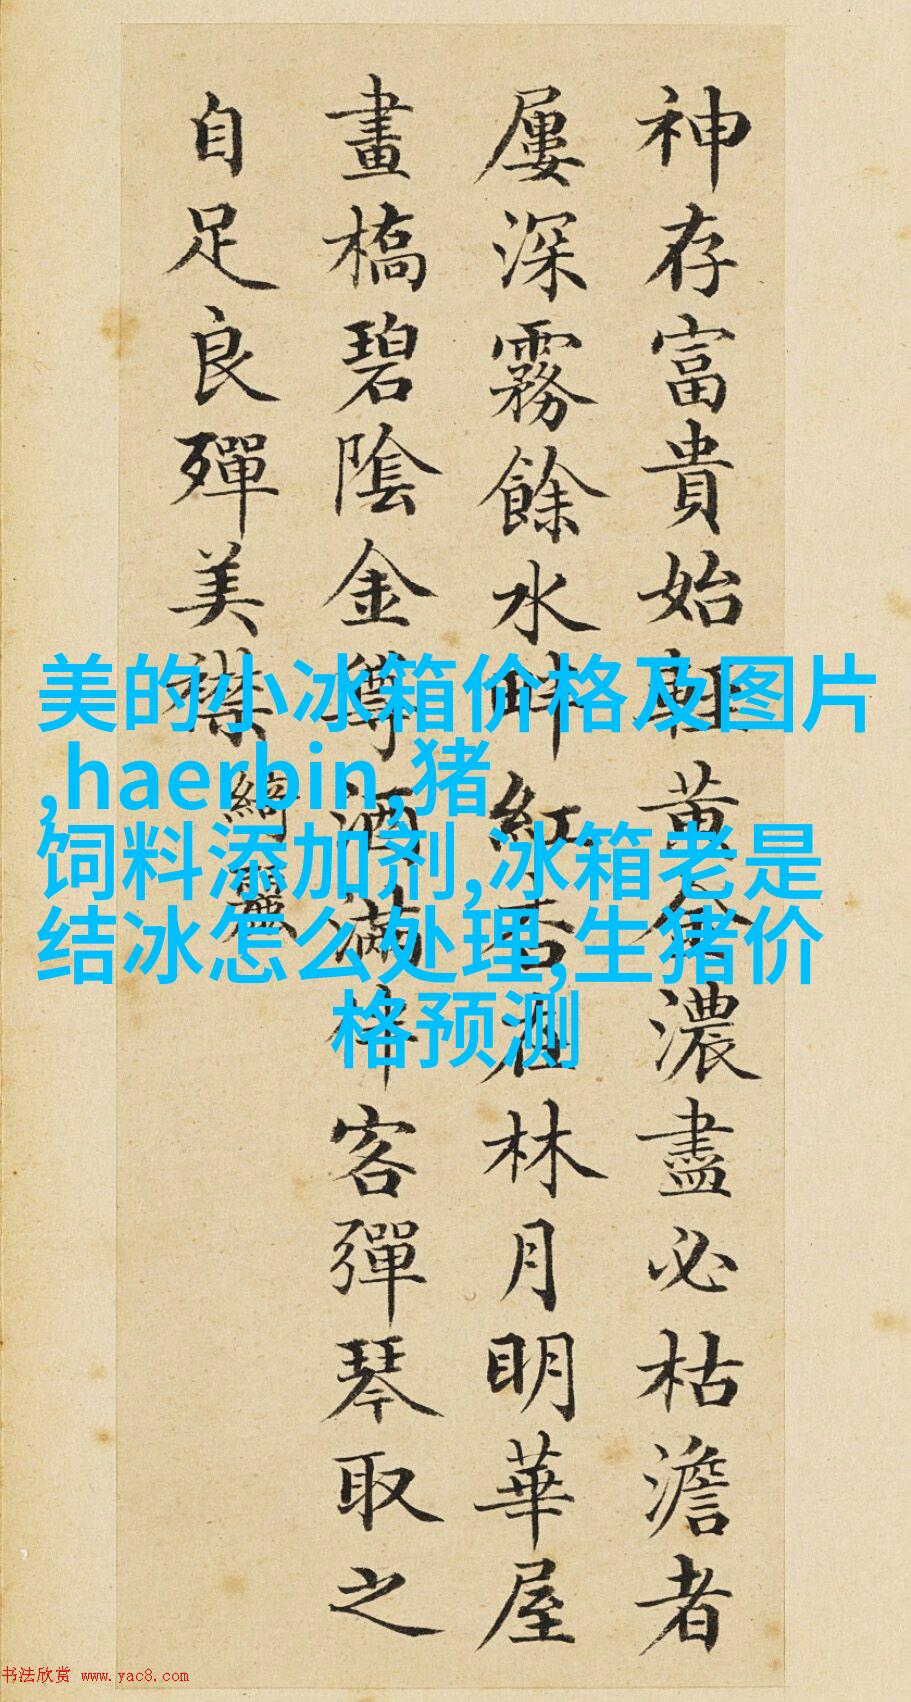 神存富貴始輕黃金濃盡必枯澹者
屢深霧餘水畔紅杏在林月明華屋
畫橋碧陰金罇酒滿伴客彈琴取之
自足良殫美襟
綺麗
美的小冰箱价格及图片
,haerbin,猪
饲料添加剂,冰箱老是
结冰怎么处理,生猪价
格预测
书法欣赏 www.yac8.com